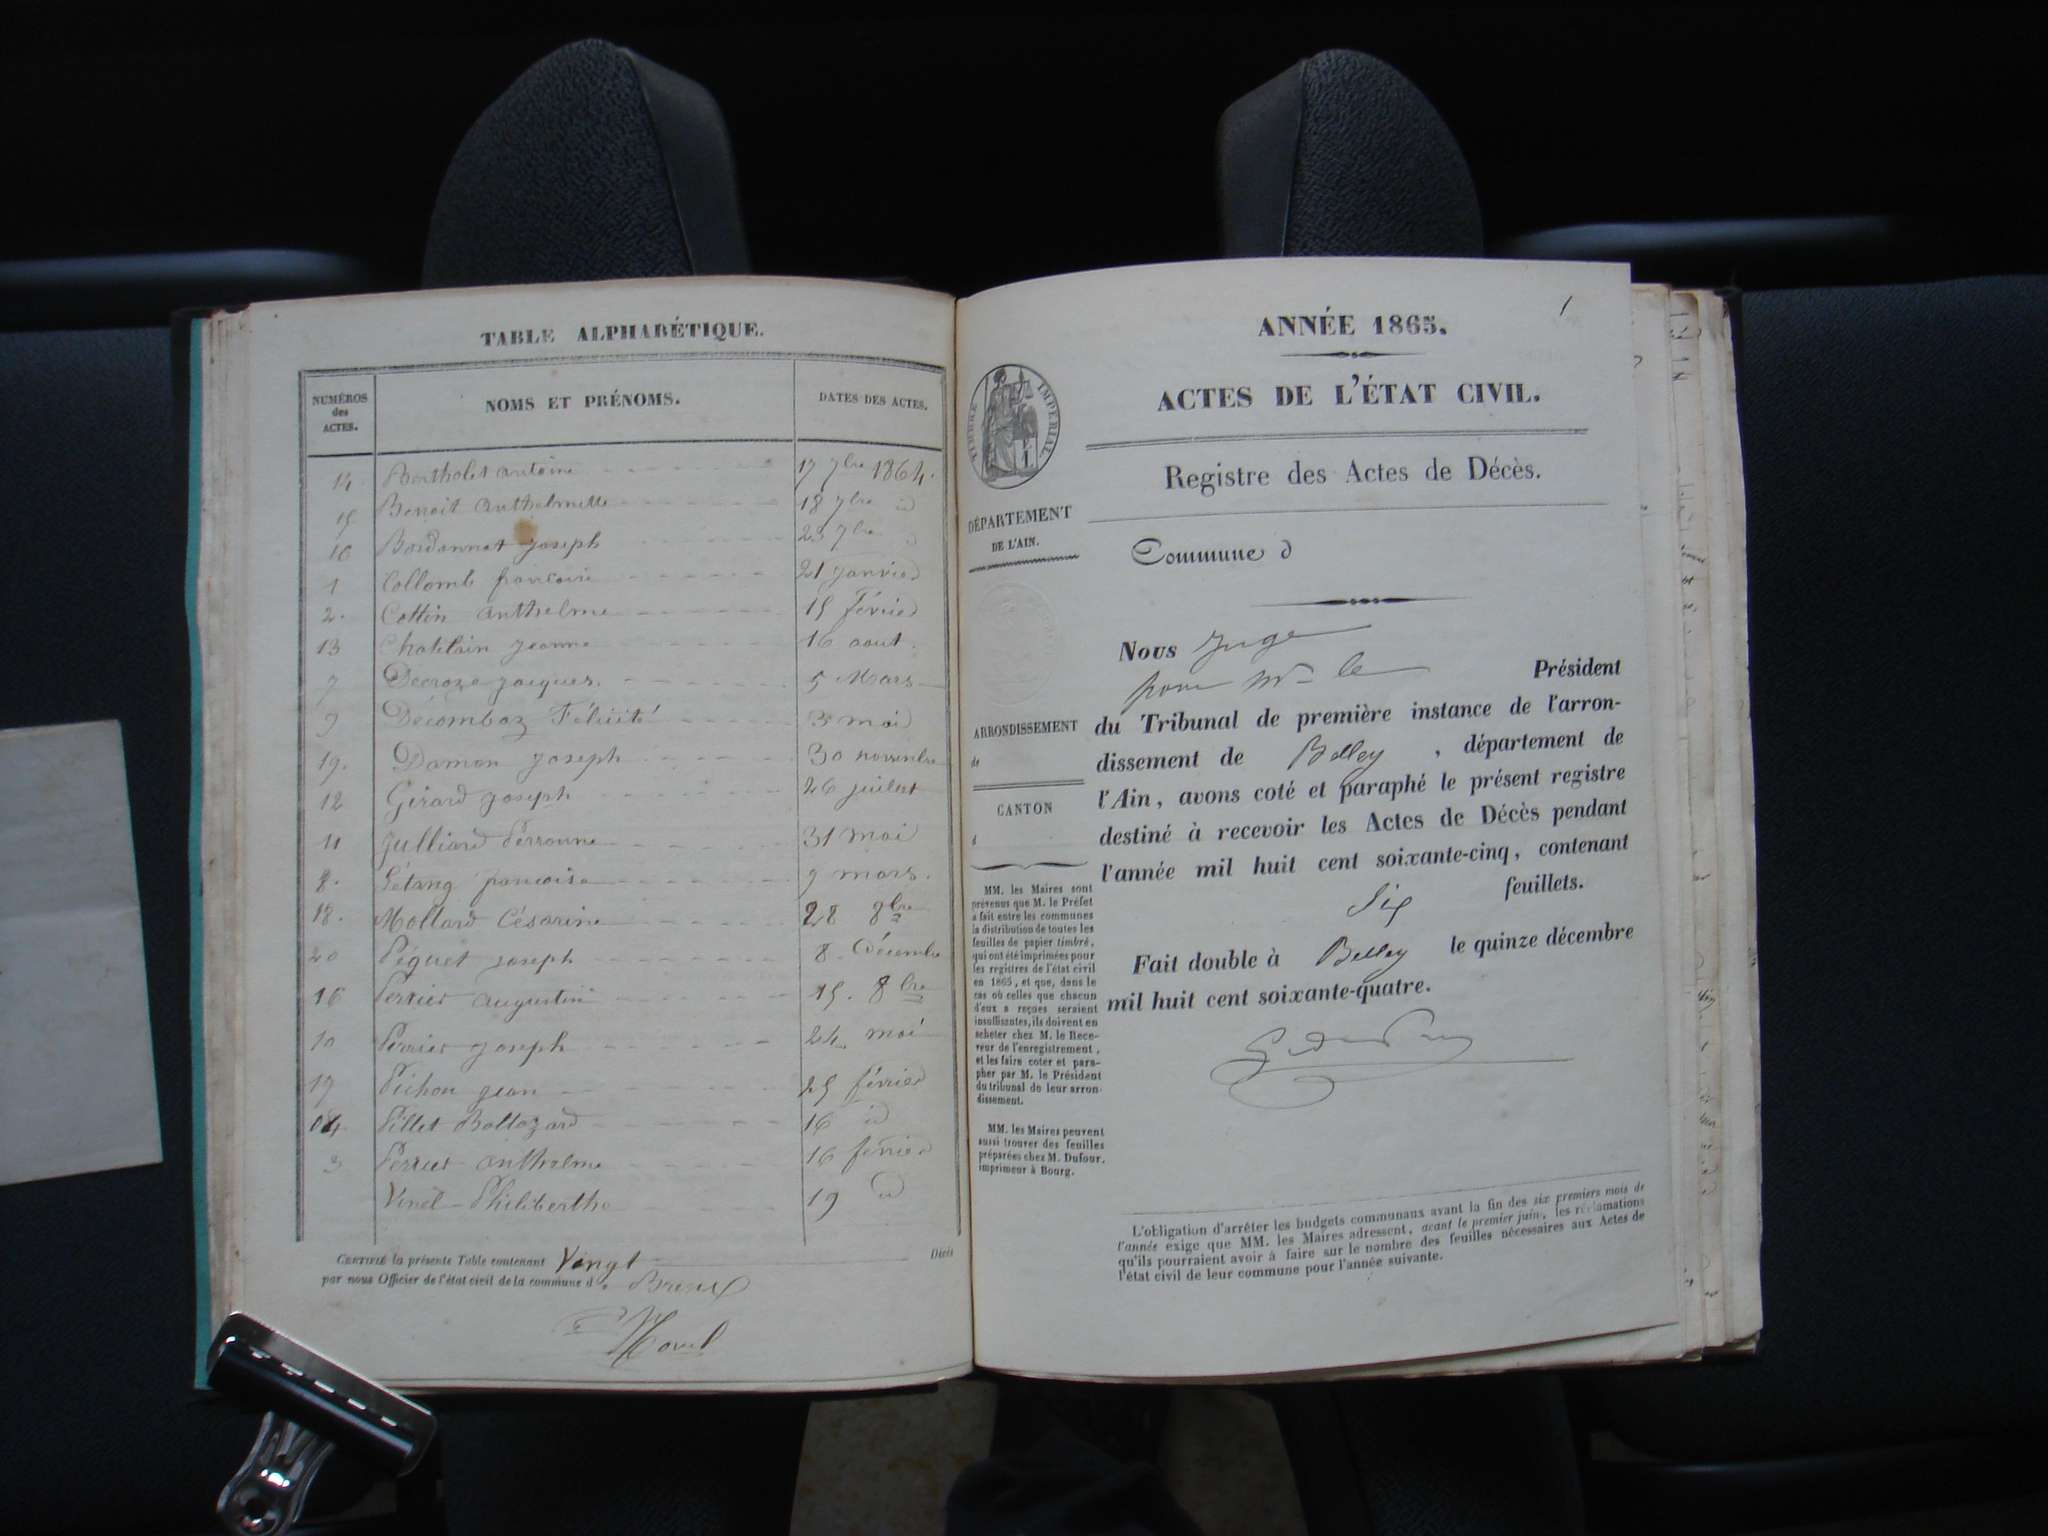 TABLE ALPHABÉTIQUE.
NUMÉROS des ACTES. NOMS ET PRÉNOMS. DATES DES ACTES.
14 Bertholet antoine 17 7bre 1864.
15 Benoit anthelmette 18 7bre id
16 Bordonnat joseph 23 7bre id
1 Collomb francoise 21 janvier
2. Cottin anthelme 15 février
13 Chatelain jeanne 16 aout.
7 Décroze jacques. 5 Mars
9 Décomboz Félicité 3 mai
19. Damon joseph 30 novembre
12 Girard joseph 26 juillet
11 Julliard Perronne 31 mai
8. Létang francoise 9 mars.
18. Mollard Césarine 28 8bre
20 Péguet joseph 8 Décembre
16 Perrier augustin 15. 8bre
10 Perrier joseph 24 mai
17 Pichon jean 25 février
Pillet Baltazard 16 id
3 Perrier anthelme 16 février
Vinel Philiberthe 19 id
CERTIFIÉ la présente Table contenant Vingt Décès
par nous Officier de l'état civil de la commune d
1
ANNÉE 1865.
ACTES DE L'ÉTAT CIVIL.
TIMBRE IMPÉRIAL
Registre des Actes de Décès.
DÉPARTEMENT
DE L'AIN.
Commune d
Nous Juge
pour Mr le Président
du Tribunal de première instance de l'arron-
dissement de Belley, département de
l'Ain, avons coté et paraphé le présent registre
destiné à recevoir les Actes de Décès pendant
l'année mil huit cent soixante-cinq, contenant
Six feuillets.
Fait double à Belley le quinze décembre
mil huit cent soixante-quatre.
ARRONDISSEMENT
de
CANTON
d
MM. les Maires sont
prévenus que M. le Préfet
a fait entre les communes
la distribution de toutes les
feuilles de papier timbré,
qui ont été imprimées pour
les registres de l'état civil
en 1865, et que, dans le
cas où celles que chacun
d'eux a reçues seraient
insuffisantes, ils doivent en
acheter chez M. le Rece-
veur de l'enregistrement,
et les faire coter et para-
pher par M. le Président
du tribunal de leur arron-
dissement.
MM. les Maires peuvent
aussi trouver des feuilles
préparées chez M. Dufour,
imprimeur à Bourg.
L'obligation d'arrêter les budgets communaux avant la fin des six premiers mois de
l'année exige que MM. les Maires adressent, avant le premier juin, les réclamations
qu'ils pourraient avoir à faire sur le nombre des feuilles nécessaires aux Actes de
l'état civil de leur commune pour l'année suivante.